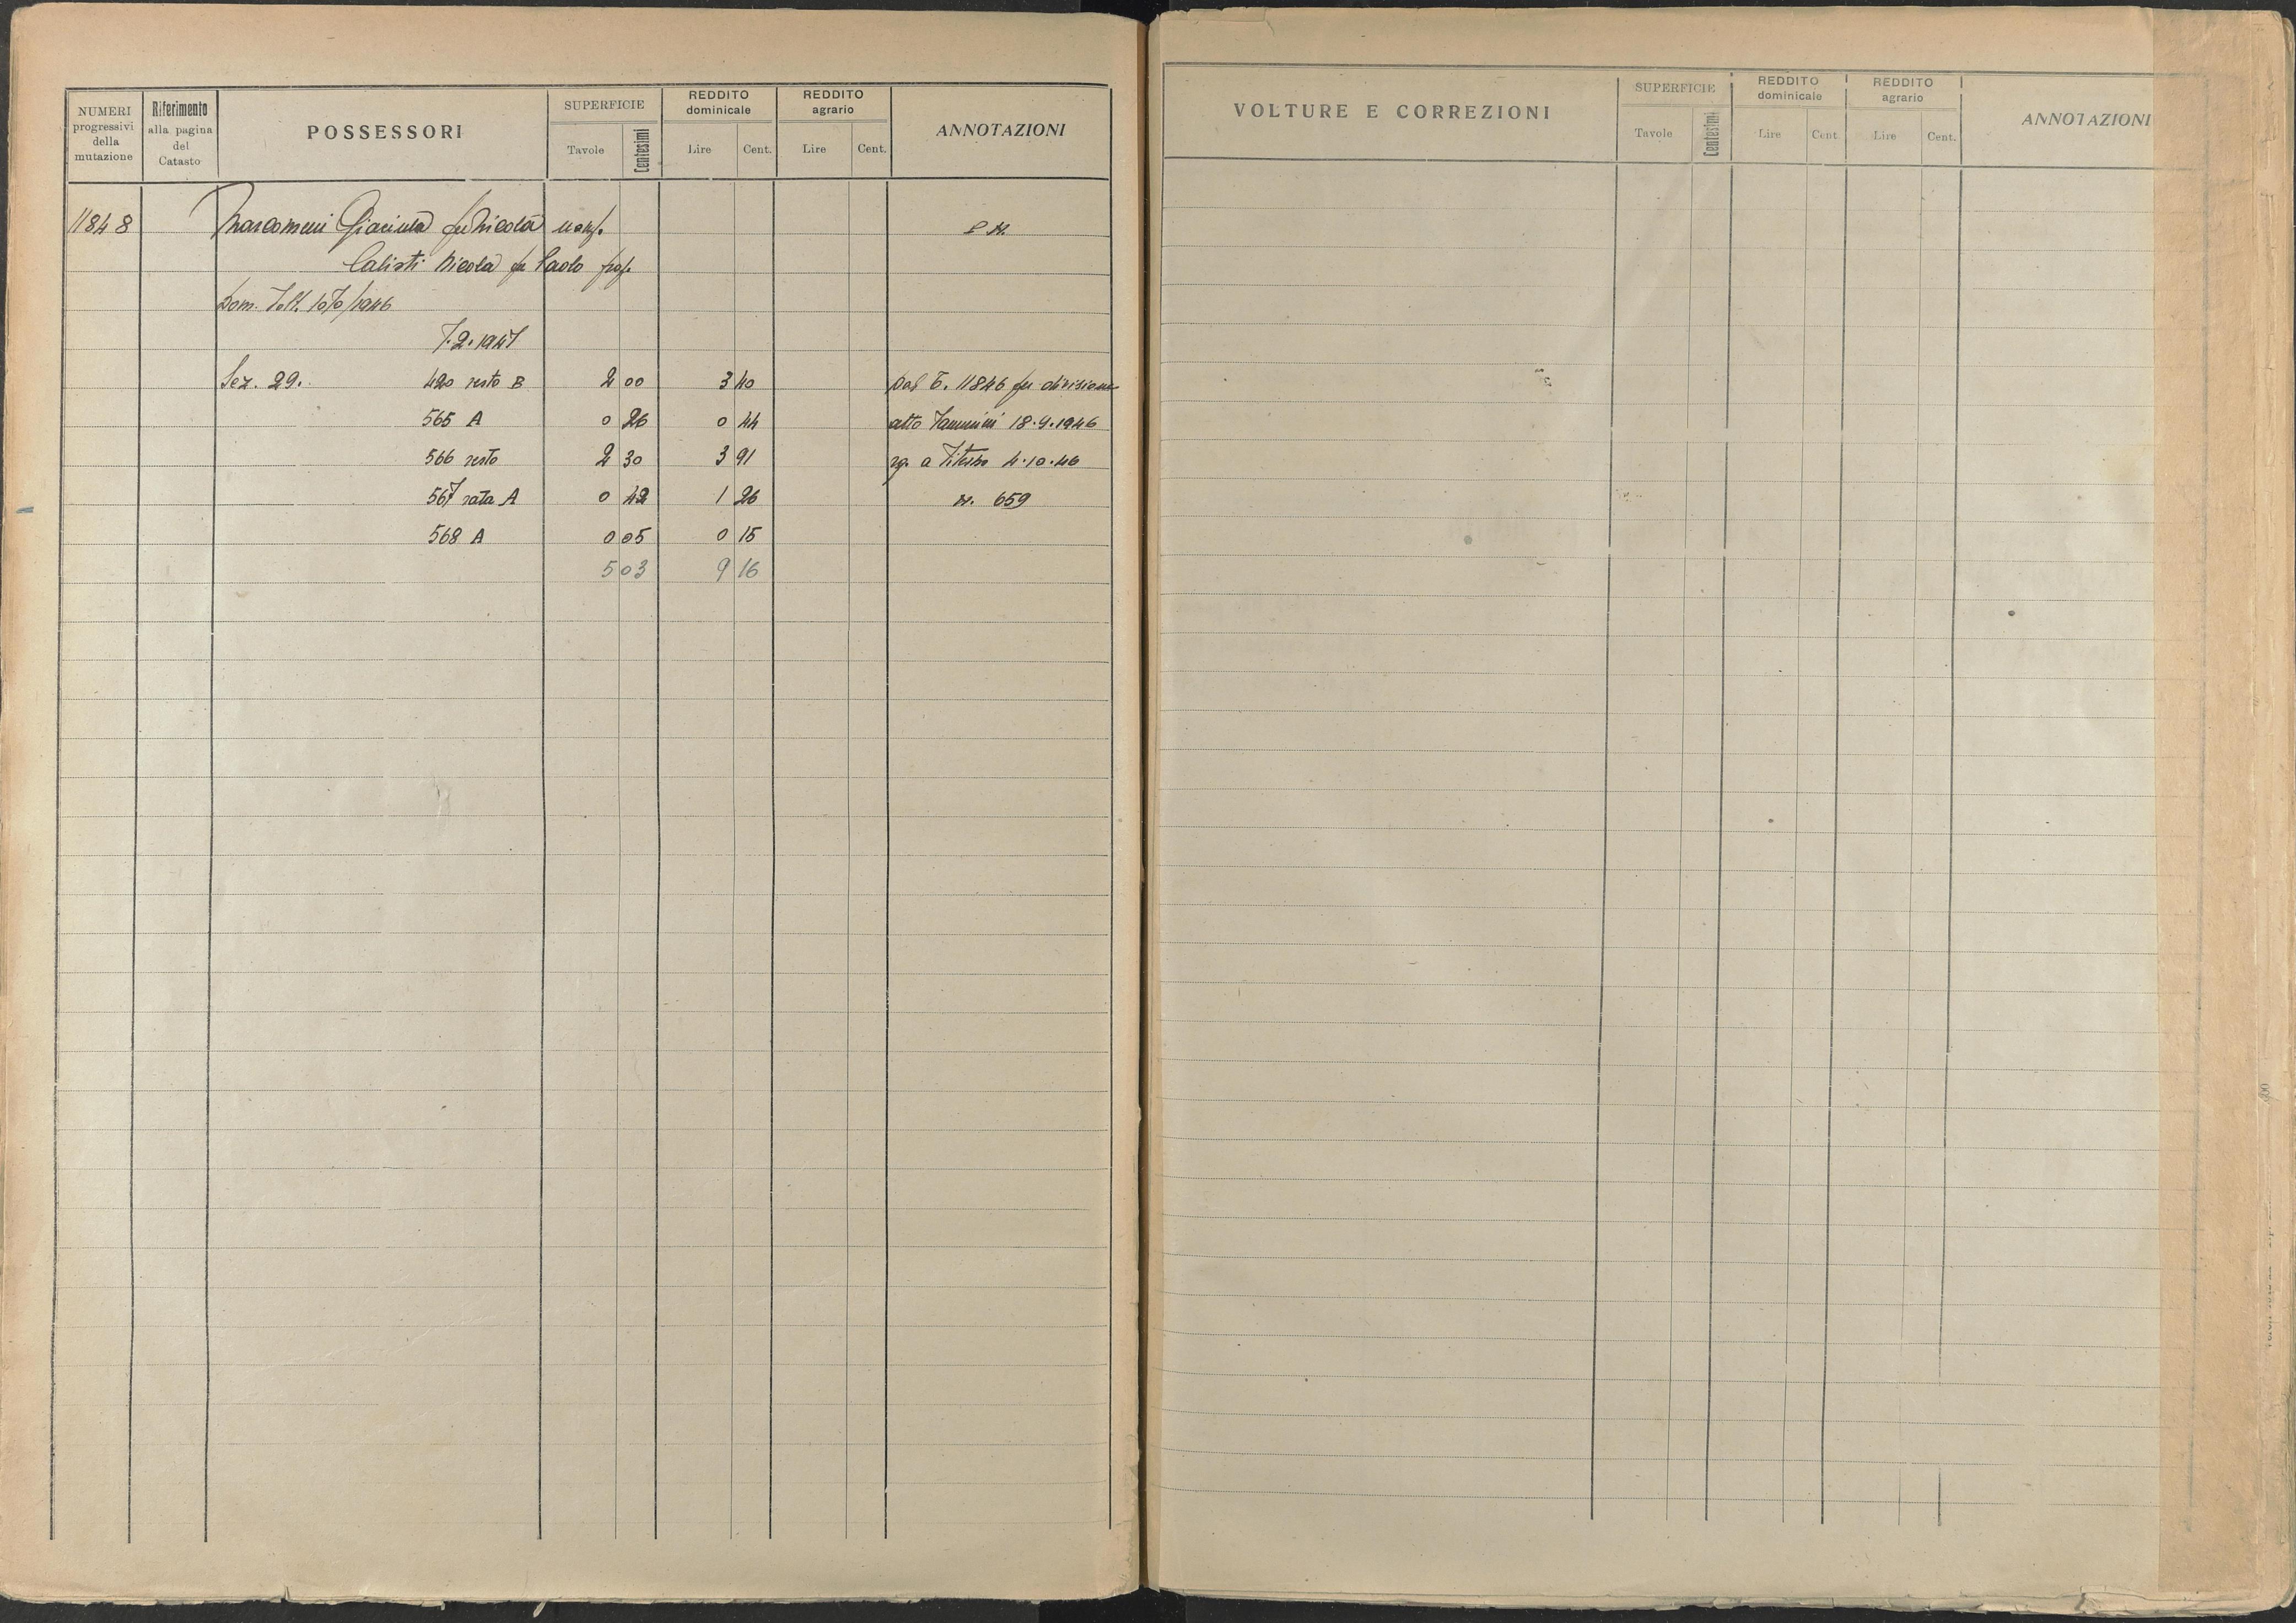 NUMERI progressivi della mutazione
Riferimento alla pagina del Catasto
POSSESSORI
SUPERFICIE
Tavole Centesimi
REDDITO dominicale
Lire Cent.
REDDITO agrario
Lire Cent.
ANNOTAZIONI
11848 Giacinta fu Nicola usuf.
Calisti Nicola fu Paolo prop.
Dom. Volt. 1946
7.2.1947
Sez. 29. 420 resto B 2 00 3 40 Dal T. 11846 per divisione
565 A 0 26 0 44 atto 18.9.1946
566 resto 2 30 3 91 rg. a Viterbo 4.10.46
567 rata A 0 42 1 26 n. 659
568 A 0 05 0 15
5 03 9 16
VOLTURE E CORREZIONI
SUPERFICIE
Tavole Centesimi
REDDITO dominicale
Lire Cent.
REDDITO agrario
Lire Cent.
ANNOTAZIONI